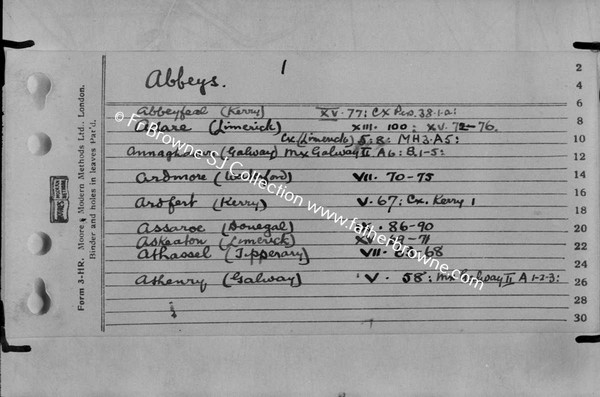 Abbeys. 1
Abbeyfeal (Kerry) XV. 77: CX
Adare (Limerick) XIII. 100: XV. 72-76.
Cx (Limerick) 5: 8: MH3. A5:
(Galway) Mx Galway II A6: B, 1-5:
Ardmore VII. 70-75
Ardfert (Kerry) V. 67: Cx. Kerry 1
Assaroe (Donegal) 86-90
Askeaton (Limerick) 71
Athassel (Tipperary) VII. 68
Athenry (Galway) V. 58: Mx Galway II A 1-2-3:
2
4
6
8
10
12
14
16
18
20
22
24
26
28
30
Form 3-HR. Moore's Modern Methods Ltd., London.
Binder and holes in leaves Pat'd.
© Fr Browne SJ Collection www.fatherbrowne.com